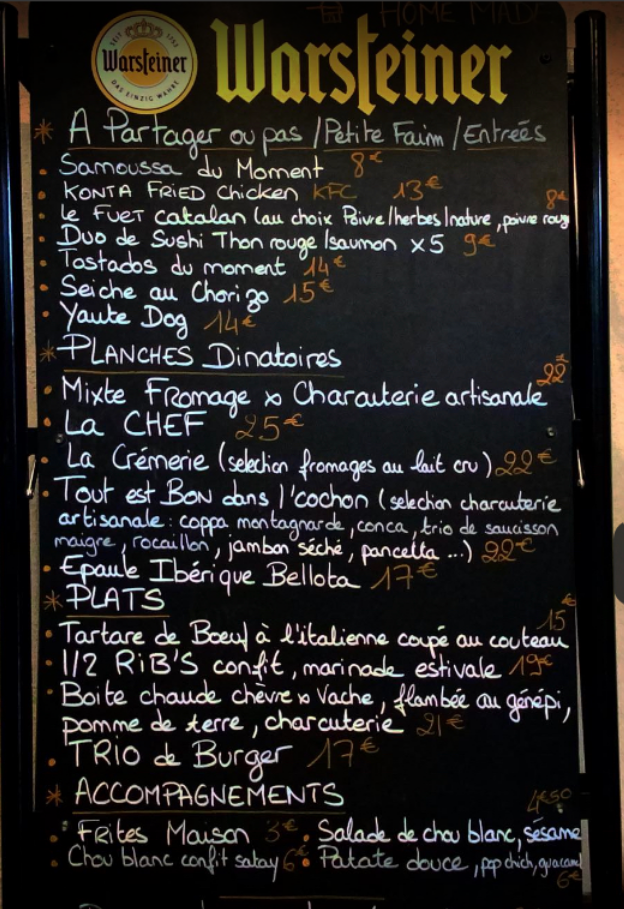 HOME MADE
SEIT 1753
Warsteiner
DAS EINZIG WAHRE
Warsteiner
* A Partager ou pas / Petite Faim / Entreés
• Samoussa du Moment 8€
• KONTA FRIED Chicken KFC 13€
• le FUET catalan (au choix Poivre/herbes/nature, poivre roug 8€
• Duo de Sushi Thon rouge/saumon x5 9€
• Tostados du moment 14€
• Seiche au Chorizo 15€
• Yaute Dog 14€
* PLANCHES Dinatoires
• Mixte Fromage x Charcuterie artisanale 22€
• La CHEF 25€
• La Crémerie (selection fromages au lait cru) 22€
• Tout est BON dans l'cochon (selection charcuterie
artisanale: coppa montagnarde, conca, trio de saucisson
maigre, rocaillon, jambon séché, pancetta ...) 22€
• Epaule Ibérique Bellota 17€
* PLATS
• Tartare de Bœuf à l'italienne coupé au couteau 15€
• 1/2 RIB'S confit, marinade estivale 19€
• Boite chaude chèvre x Vache, flambée au génépi,
pomme de terre, charcuterie 21€
• TRIO de Burger 17€
* ACCOMPAGNEMENTS
• Frites Maison 3€ • Salade de chou blanc, sésame 4€50
• Chou blanc confit satay 6€ • Patate douce, pop chich, guacamol 6€